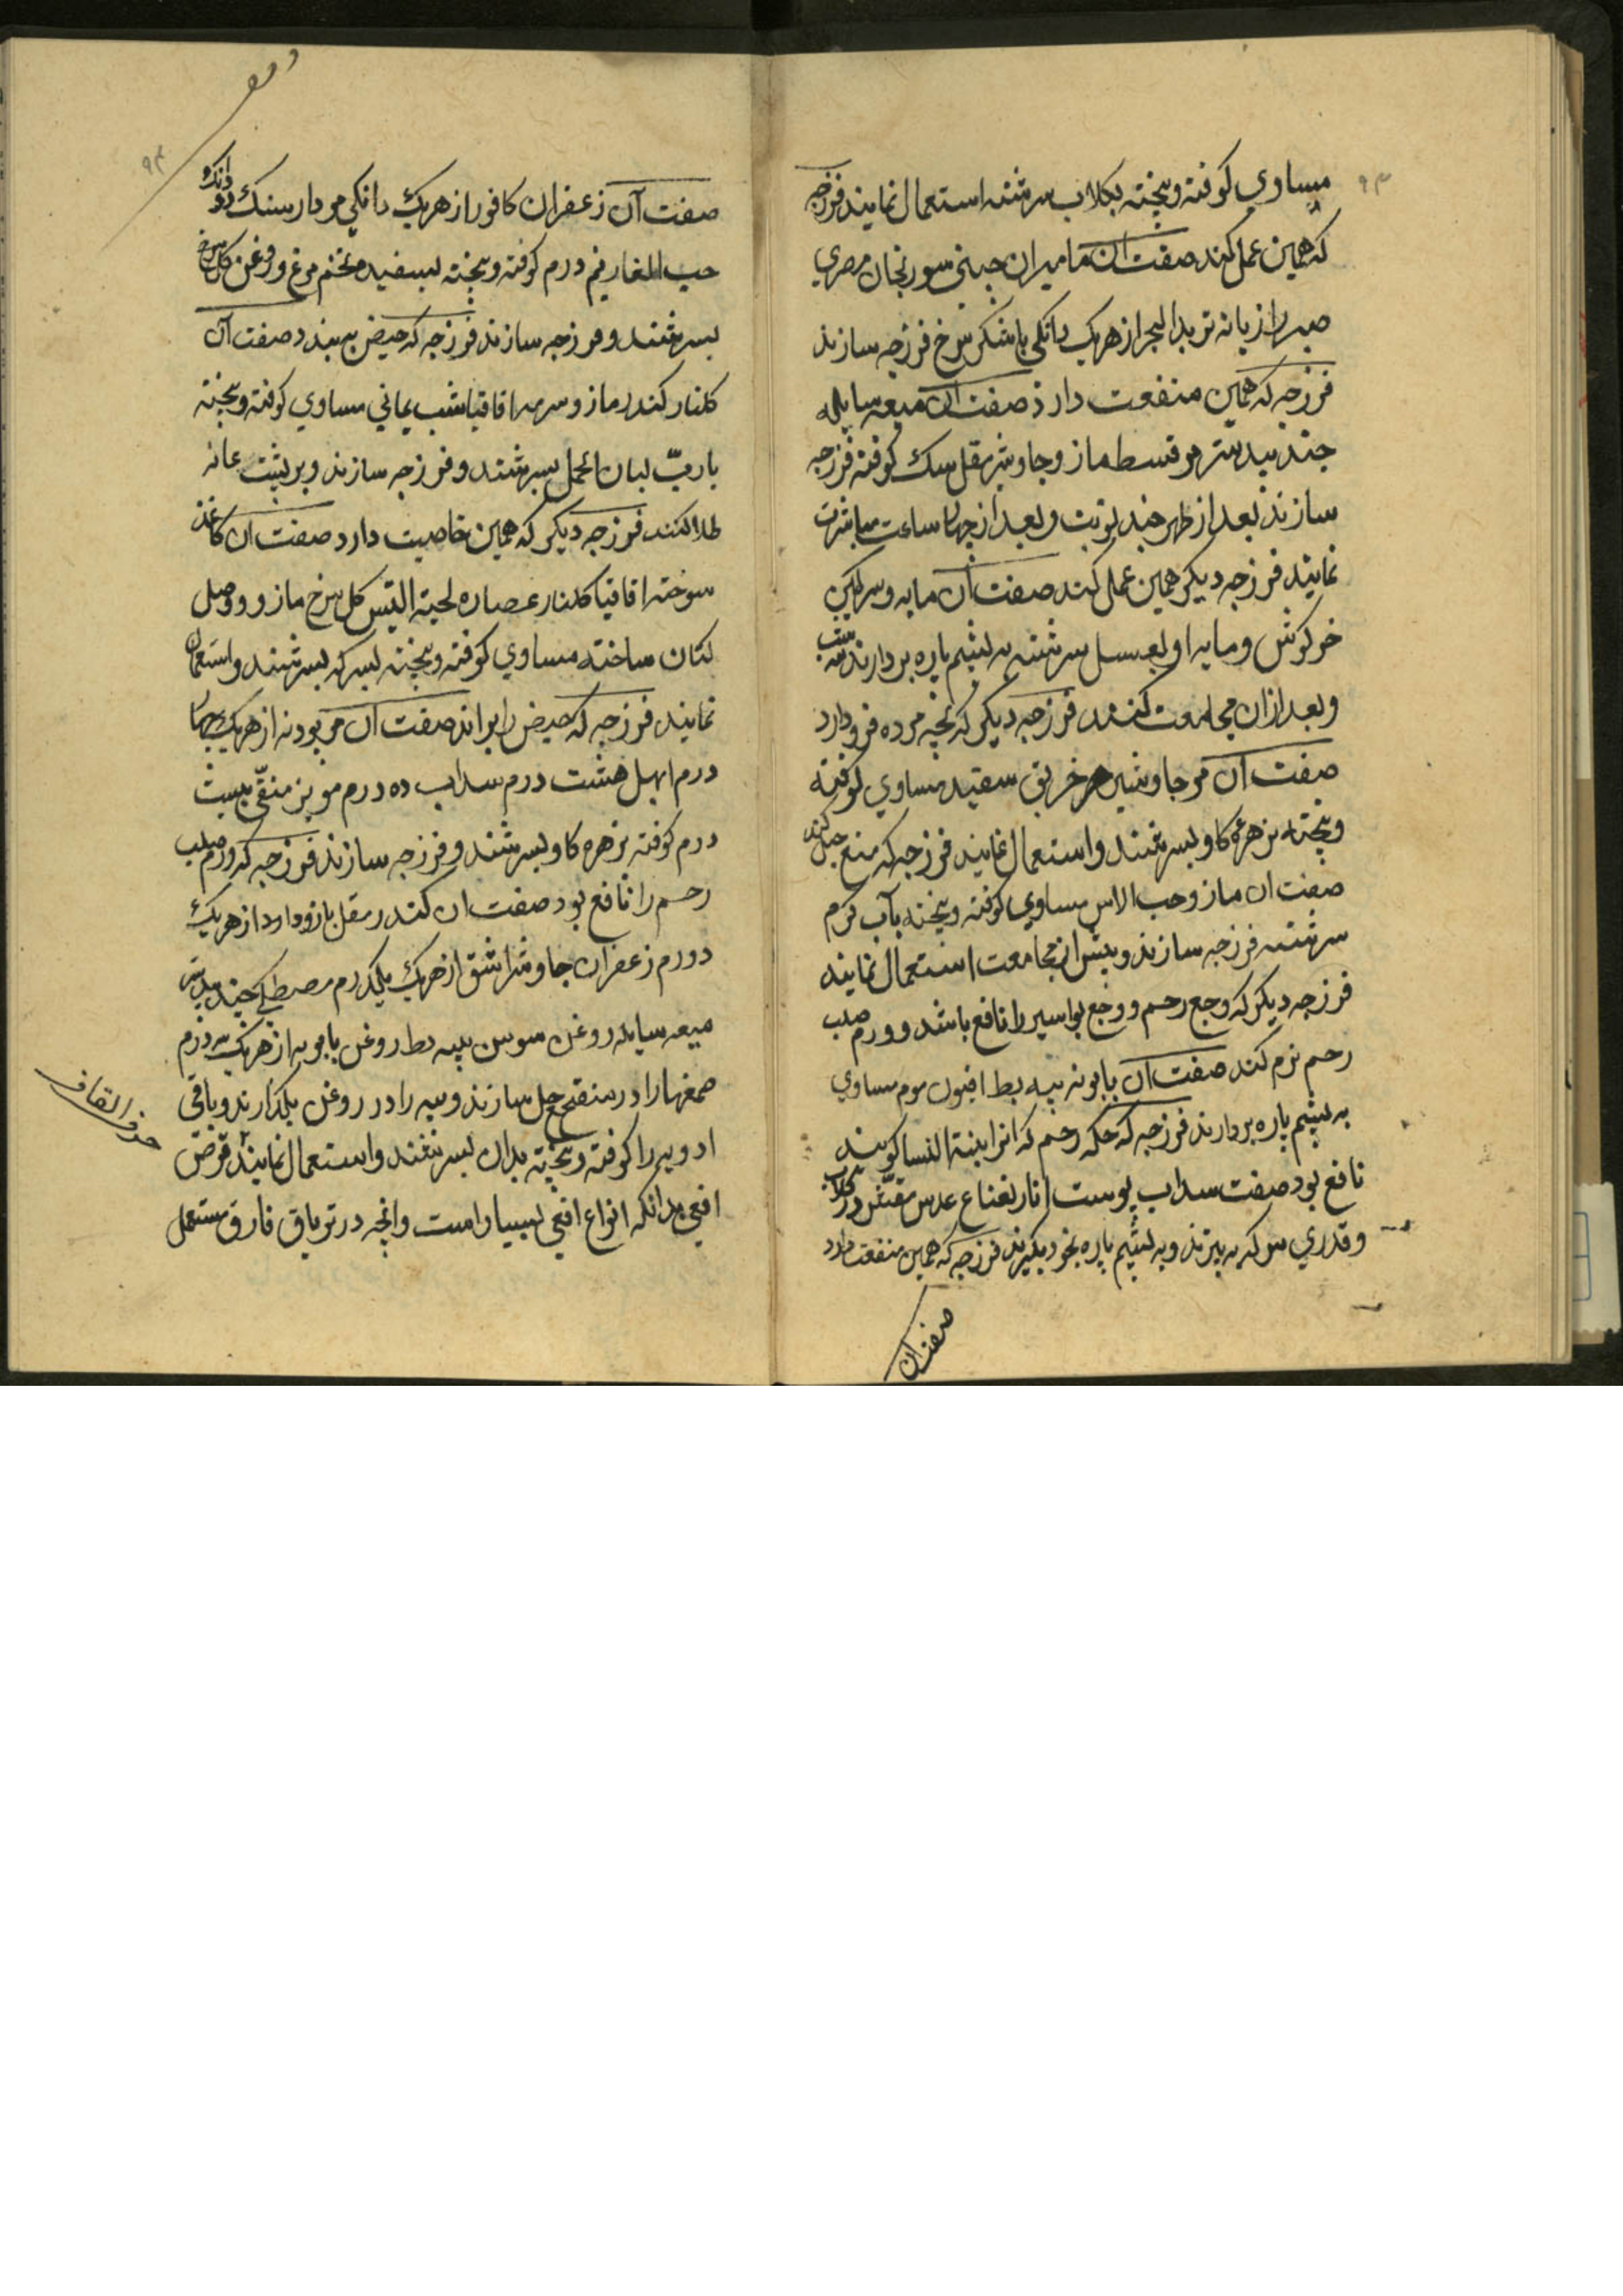 مساوي كوفته و بيخته بكلاب سرشته استعمال نمايند فرزجه
كه همين عمل كند صفت ان ماميران چيني سورنجان مصري
صبر رازيانه زبد البحر از هريك دانكي باشكر سرخ فرزجه سازند
فرزجه كه همين منفعت دارد صفت ان ميعه سايله
جندبيدستر مر قسط مازو جاوشير مقل سك كوفته فرزجه
سازند بعد از طهر چند نوبت و بعد از چهار ساعت مباشرت
نمايند فرزجه ديكر همين عمل كند صفت آن مايه و سركين
خركوش و مايه او بعسل سرشته به پشم پاره بردارند سه شب
و بعد ازان مجامعت كنند فرزجه ديكر كه بچه مرده فرو دارد
صفت آن مر جاوشير خربق سفيد مساوي كوفته
و بيخته بزهره كاو بسرشند و استعمال نمايند فرزجه كه منع حبل كند
صفت ان مازو حب الاس مساوي كوفته و بيخته بآب كرم
سرشته فرزجه سازند و پيش از مجامعت استعمال نمايند
فرزجه ديكر كه وجع رحم و وجع بواسير را نافع باشد و ورم صلب
رحم نرم كند صفت آن بابونه پيه بط افيون موم مساوي
به پشم پاره بردارند فرزجه كه حكه رحم كه انرا ابنة النسا كويند
نافع بود صفت سداب پوست انار نعناع عدس مقشر در كلاب
و قدري سركه به پزند و به پشم پاره بخود بكيرند فرزجه كه همين منفعت دارد
صفت ان
٩٤
صفت آن زعفران كافور از هريك دانكي مردارسنك دو دانك و
حب الغار نيم درم كوفته و بيخته بسفيده تخم مرغ و روغن كل سرخ
بسرشند و فرزجه سازند فرزجه كه حيض به بندد صفت آن
كلنار كندر مازو سرمه اقاقيا شب يماني مساوي كوفته و بيخته
با ربّ لسان الحمل بسرشند و فرزجه سازند و بر پشت عانه
طلا كنند فرزجه ديكر كه همين خاصيت دارد صفت ان كاغذ
سوخته اقاقيا كلنار عصاره لحية التيس كل سرخ مازو و وصل
كتان ساخته مساوي كوفته و بيخته بسركه بسرشند و استعمال
نمايند فرزجه كه حيض را براند صفت آن مر پودنه از هريك چهار
درم ابهل هشت درم سداب ده درم مويز منقّي بيست
درم كوفته بزهره كاو بسرشند و فرزجه سازند فرزجه كه ورم صلب
رحم را نافع بود صفت ان كندر مقل بازو دارد از هريك
دو درم زعفران جاوشير اشق از هريك يكدرم مصطكي جندبيدستر
ميعه سايله روغن سوسن پيه بط روغن بابونه از هريك سه درم
صمغها را در منقح حل سازند و پيه را در روغن بكدازند و باقي
ادويه را كوفته و بيخته بدان بسرشند و استعمال نمايند قرص
افعي بدانكه انواع افعي بسيار است و انچه در ترياق فاروق مستعمل
حرف القاف